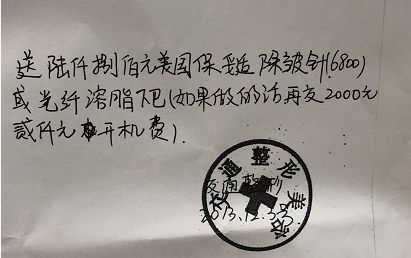 送陆仟捌佰元美国保妥适除皱针(6800)
或光纤溶脂下巴(如果做的话再交2000元
贰仟元 开机费).
交通整形美容